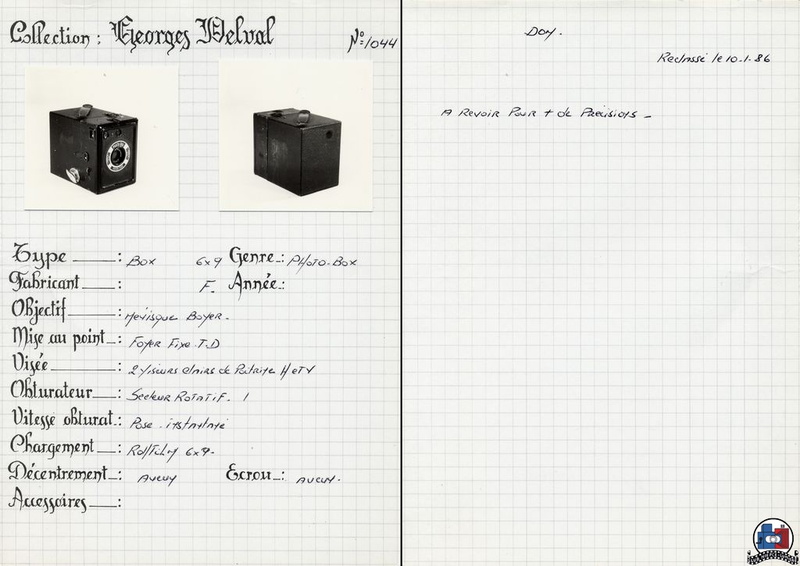 Collection : Georges Delval
Nº 1044
Type : Box 6x9 Genre : Photo-Box
Fabricant : F. Année :
Objectif : Ménisque Boyer.
Mise au point : Foyer Fixe T.D
Visée : 2 viseurs clairs de Poitrine H et V
Obturateur : Secteur Rotatif. 1
Vitesse obturat. : Pose. instantané
Chargement : Rollfilm 6x9.
Décentrement : Aucun Ecrou : Aucun.
Accessoires :
Don.
Reclassé le 10.1.86
A Revoir Pour + de Précisions -